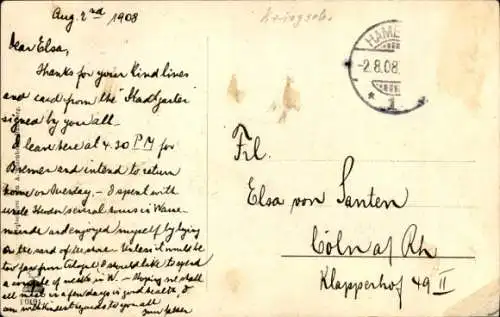 Aug. 2nd 1908
Dear Elsa,
Thanks for your kind lines
and card from the Stadtgarten
signed by you all.—
I leave here at 4.30 PM for
Bremen and intend to return
home on Tuesday. — I spent with
uncle several hours in Warne-
münde and enjoyed myself by lying
on the sand of the shore. Unless it would be
too far from I should like to spend
a couple of weeks in W. — Hoping we shall
all meet in a few days in good health, I
am with kindest regards to you all
HAMB
-2.8.08.
* 1
Frl.
Elsa von Santen
Cöln a/Rh
Klapperhof 49 II